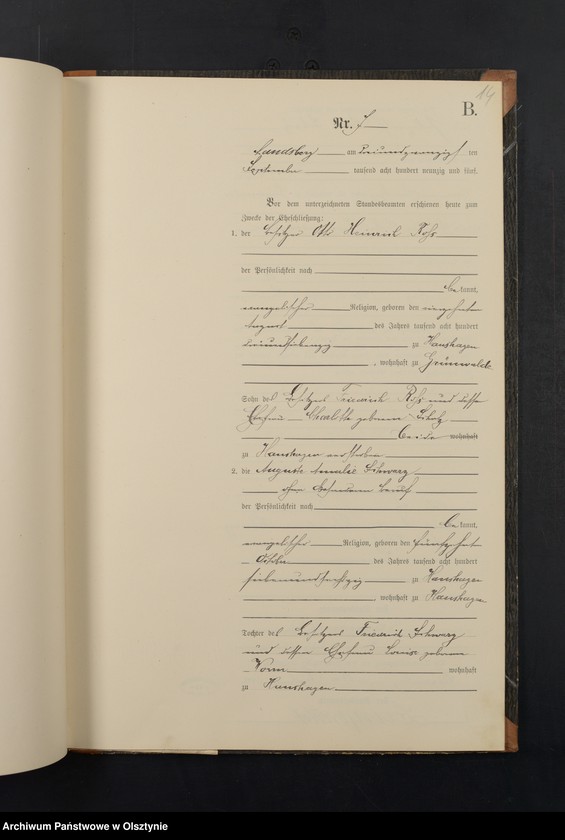 14
B.
Nr. 7
Landsberg am dreiundzwanzigsten
September tausend acht hundert neunzig und fünf.
Vor dem unterzeichneten Standesbeamten erschienen heute zum
Zwecke der Eheschließung:
1. der Besitzer Otto Heinrich
der Persönlichkeit nach
bekannt,
evangelischer Religion, geboren den vierzehnten
August des Jahres tausend acht hundert
zu Hanshagen
, wohnhaft zu Grünwalde
Sohn des Besitzers Friedrich und dessen
Ehefrau Charlotte geborenen
beide wohnhaft
zu Hanshagen verstorben
2. die Auguste Amalie Schwarz
ohne besonderen Beruf
der Persönlichkeit nach
bekannt,
evangelischer Religion, geboren den
Oktober des Jahres tausend acht hundert
siebenundsechzig zu Hanshagen
, wohnhaft zu Hanshagen
Tochter des Besitzers Friedrich Schwarz
und dessen Ehefrau Louise geborenen
wohnhaft
zu Hanshagen
Archiwum Państwowe w Olsztynie